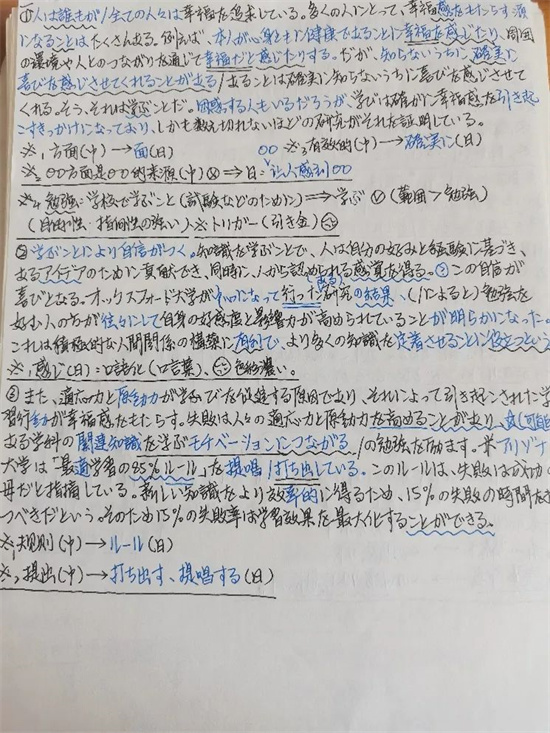 ①人は誰もが/全ての人々は幸福を追求している。多くの人にとって、幸福感をもたらす源
になることはたくさんある。例えば、本人が心身ともに健康であることに幸福を感じたり、周囲
の環境や人とのつながりを通じて幸福だと感じたりする。だが、知らないうちに確実に
喜びを感じさせてくれることがある/あることは確実に知らないうちに喜びを感じさせて
くれる。そう、それは学ぶことだ。困惑する人もいるだろうが、学びは確かに幸福感を引き起
こすきっかけになっており、しかも数え切れないほどの研究がそれを証明している。
※1方面(中)→面(日) ※3有效的(中)→確実に(日)
※2〇〇方面是〇〇的来源(中)ⓧ⇒日:让人感到〇〇
※4勉強:学校で学ぶこと(試験などのために)⇒学ぶ (範囲>勉強)
(自由性・指向性の強い)※トリガー(引き金)
②学ぶことにより自信がつく。知識を学ぶことで、人は自分の好みと経験に基づき、
あるアイデアのために貢献でき、同時に、人から認められる感覚を得る。この自信が
喜びとなる。オックスフォード大学が 行った研究の結果、(/によると)勉強を
好む人の方が往々にして自身の好感度と影響力が高められていることが明らかになった。
これは積極的な人間関係の構築に有利で、より多くの知識を定着させることに役立つという。
※1感じ(日):口語化(口言葉)、色彩濃い。
③また、適応力と原動力が学びを促進する原因であり、それによって引き起こされた学
習行動が幸福感をもたらす。失敗は人々の適応力と原動力を高めることがあり、
ある学科の関連知識を学ぶモチベーションにつながる/の勉強を励ます。米アリゾナ
大学は「最適学習の85%ルール」を提唱/打ち出している。このルールは、失敗は成功の
母だと指摘している。新しい知識をより効率的に得るため、15%の失敗の時間を
つべきだという。そのため15%の失敗率は学習効果を最大化することができる。
※1規則(中)→ルール(日)
※2提出(中)→打ち出す、提唱する(日)